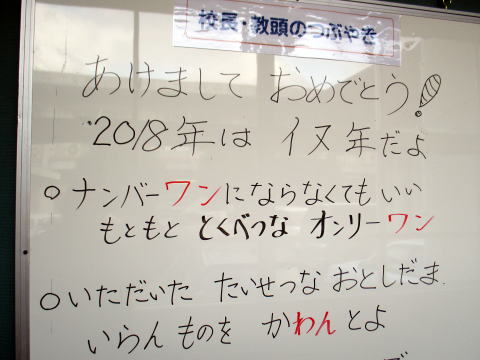 校長・教頭のつぶやき
あけまして おめでとう!
'2018年は イヌ年だよ
○ナンバーワンにならなくてもいい
もともと とくべつな オンリーワン
○いただいた たいせつな おとしだま
いらん ものを かわんとよ